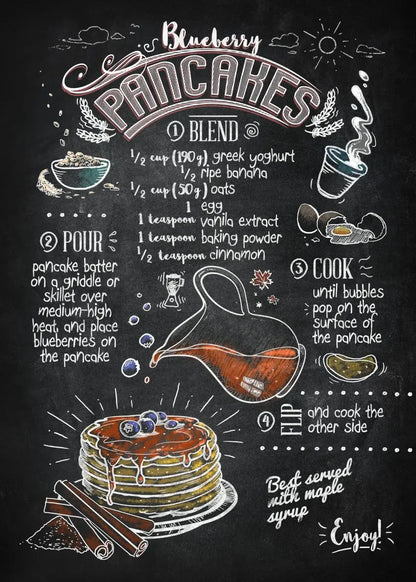 Blueberry
PANCAKES
1 BLEND
1/2 cup (190g) greek yoghurt
1/2 ripe banana
1/2 cup (50g) oats
1 egg
1 teaspoon vanila extract
1 teaspoon baking powder
1/2 teaspoon cinnamon
2 POUR
pancake batter
on a griddle or
skillet over
medium-high
heat, and place
blueberries on
the pancake
3 COOK
until bubbles
pop on the
surface of
the pancake
4 FLIP and cook the
other side
Best served
with maple
syrup
Enjoy!